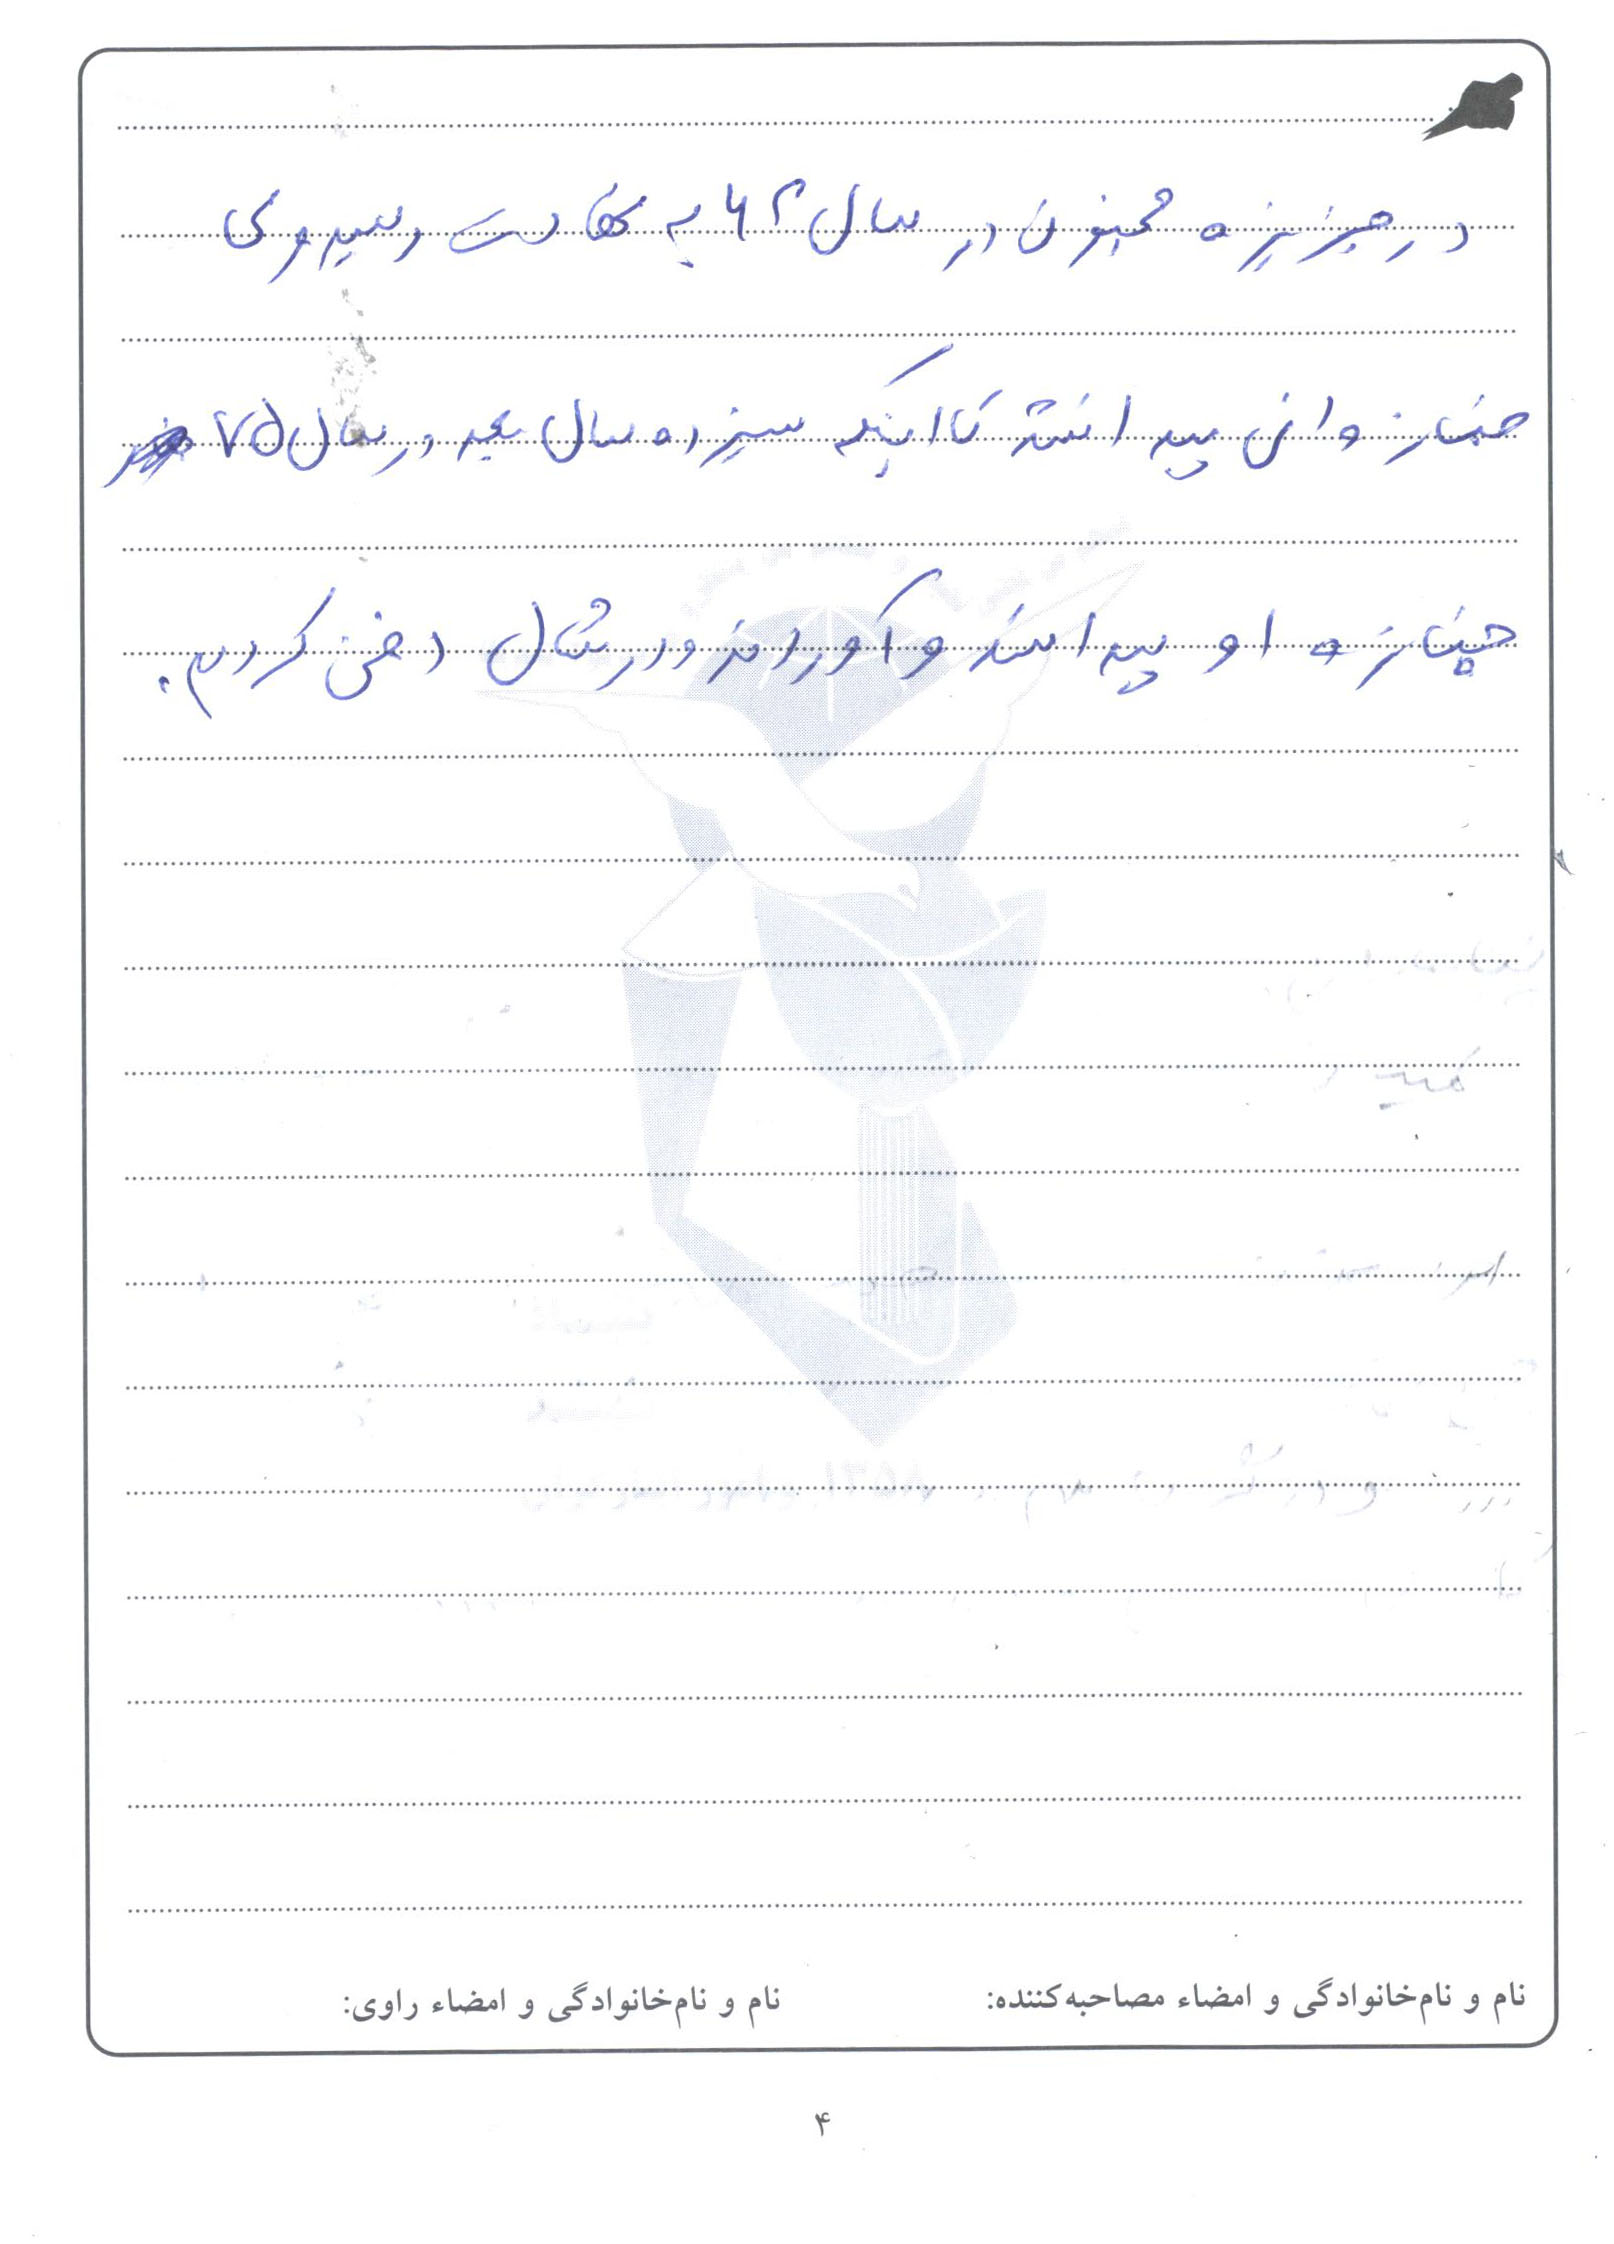 در جزیره مجنون در سال ۶۲ به شهادت رسید ولی
جنازه اش پیدا نشد تا اینکه سیزده سال بعد در سال ۷۵
جنازه او پیدا شد و آوردند و در شال دفن کردیم.
نام و نام‌خانوادگی و امضاء مصاحبه‌کننده:
نام و نام‌خانوادگی و امضاء راوی:
۴